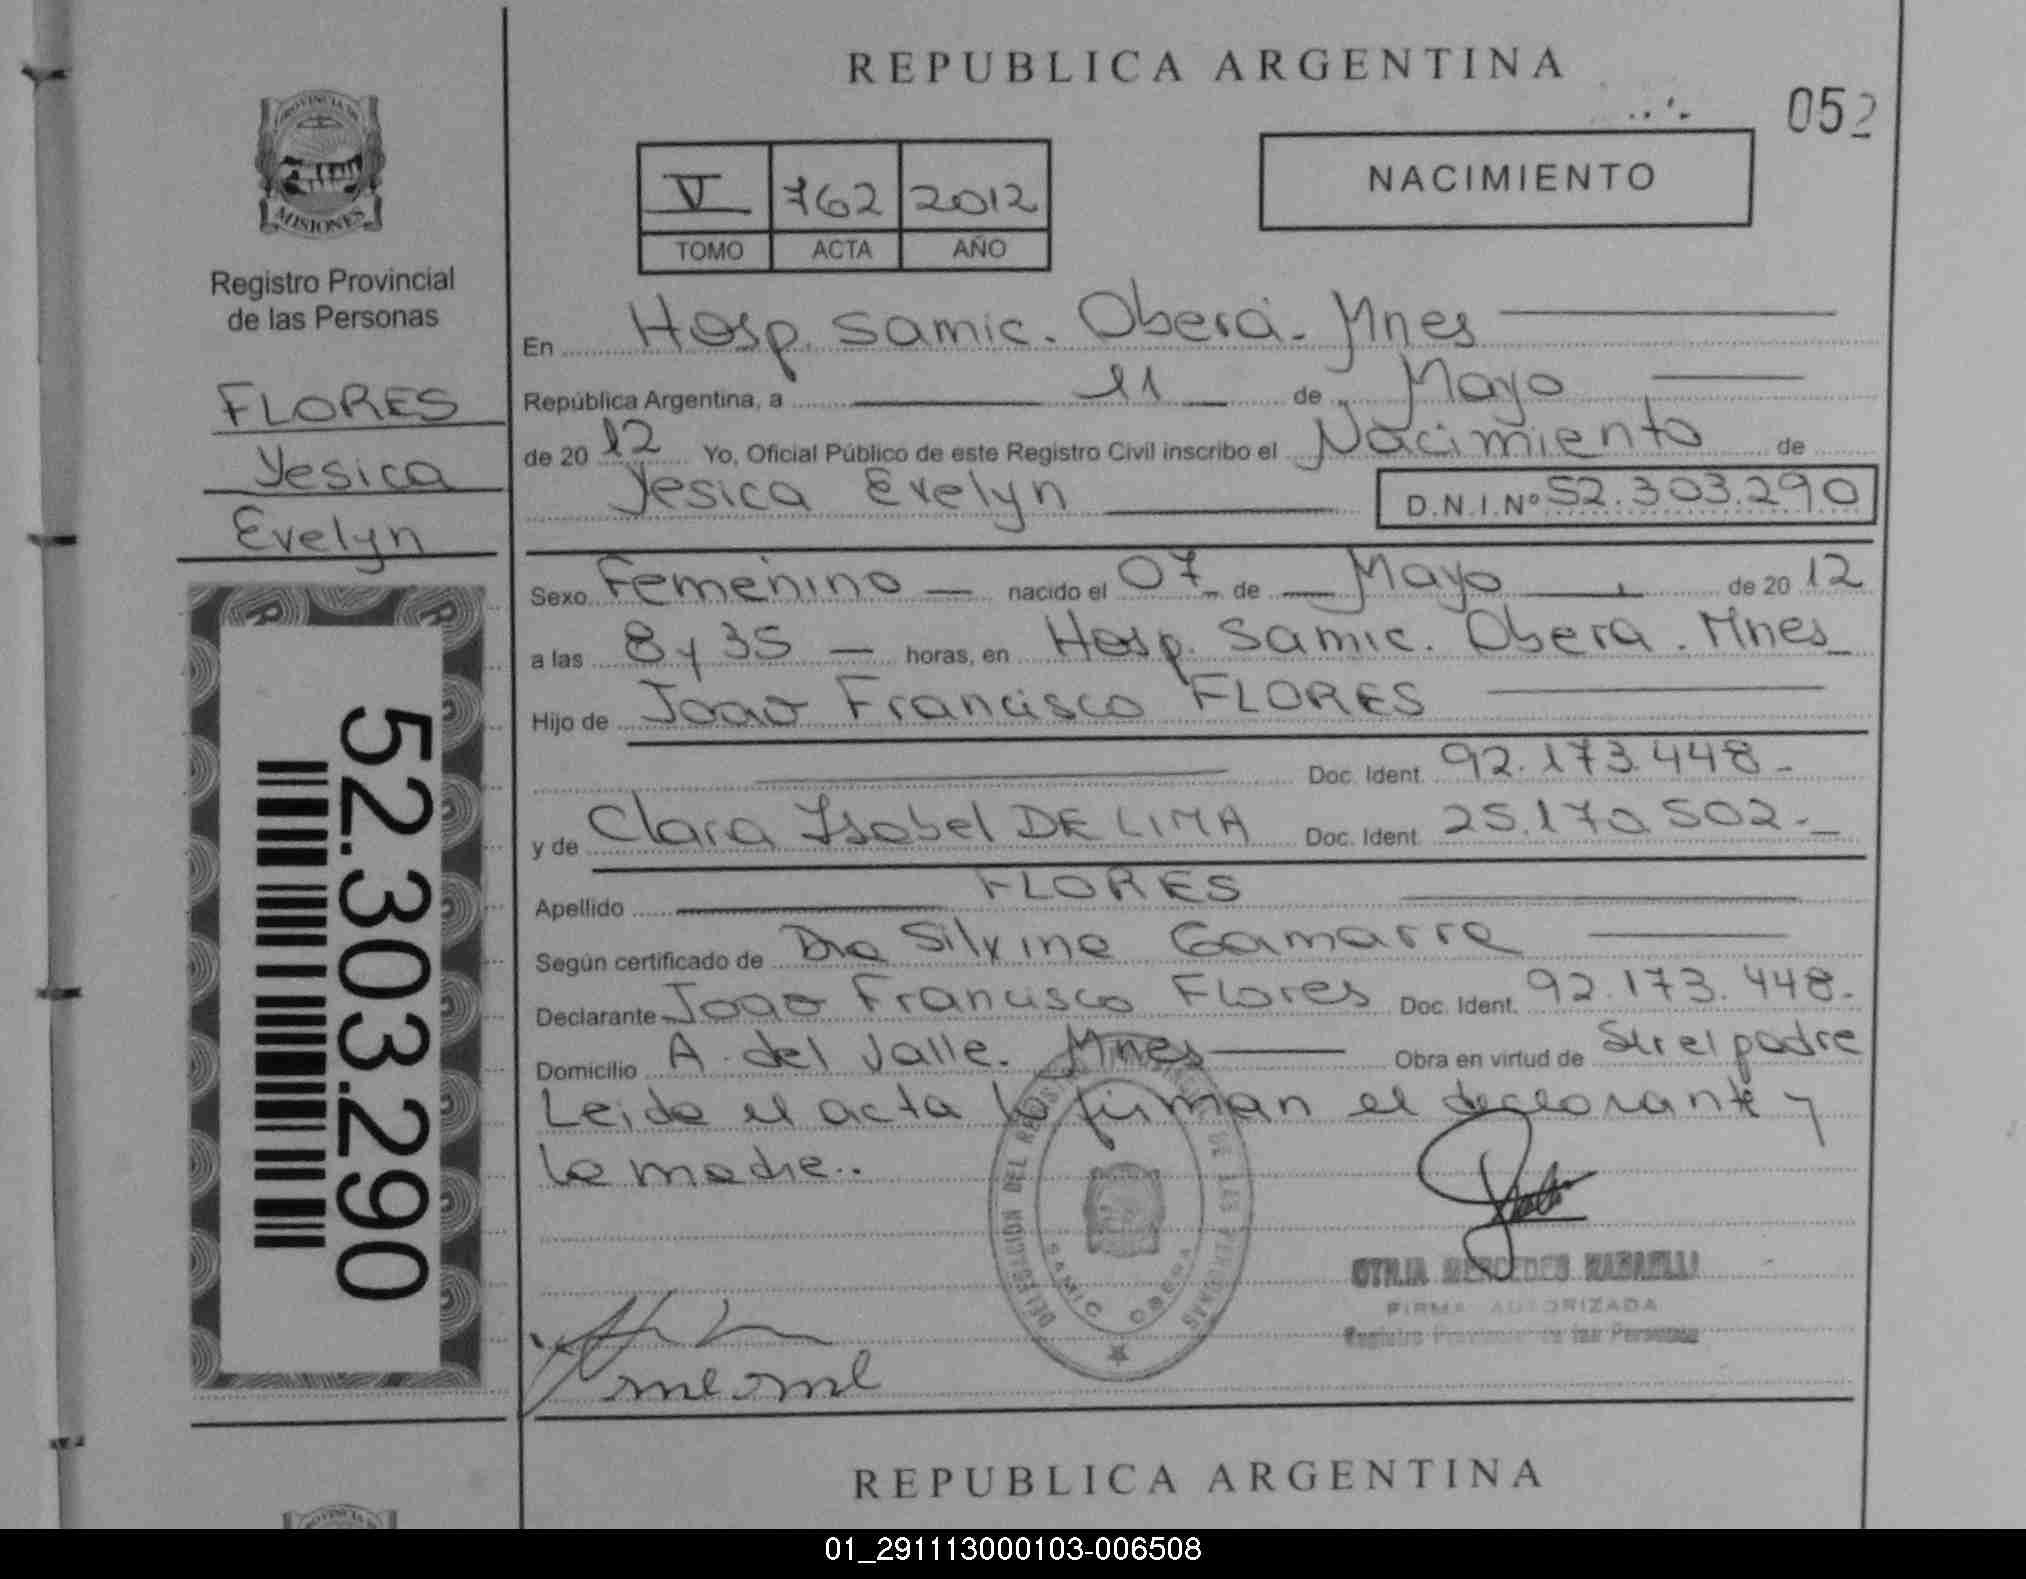 REPUBLICA ARGENTINA
052
PROVINCIA DE
MISIONES
Registro Provincial
de las Personas
FLORES
Yesica
Evelyn
52.303.290
V 762 2012
TOMO ACTA AÑO
NACIMIENTO
En Hosp. Samic. Oberá. Mnes
República Argentina, a 11 de Mayo
de 2012 Yo, Oficial Público de este Registro Civil inscribo el Nacimiento de
Yesica Evelyn D.N.I.Nº 52.303.290
Sexo Femenino nacido el 07 de Mayo de 2012
a las 8 y 35 horas, en Hosp. Samic. Obera. Mnes
Hijo de Joao Francisco FLORES
Doc. Ident. 92.173.448.
y de Clara Isabel DE LIMA Doc. Ident. 25.170.502.
Apellido FLORES
Según certificado de Dra Silvina Gamarra
Declarante Joao Francisco Flores Doc. Ident. 92.173.448.
Domicilio A. del Valle. Mnes Obra en virtud de Ser el padre
Leida el acta la firman el declarante y
la madre..
DELEGACION DEL REGISTRO PROVINCIAL DE LAS PERSONAS
SAMIC OBERA
MERCEDES
FIRMA AUTORIZADA
Registro Provincial de las Personas
REPUBLICA ARGENTINA
01_291113000103-006508